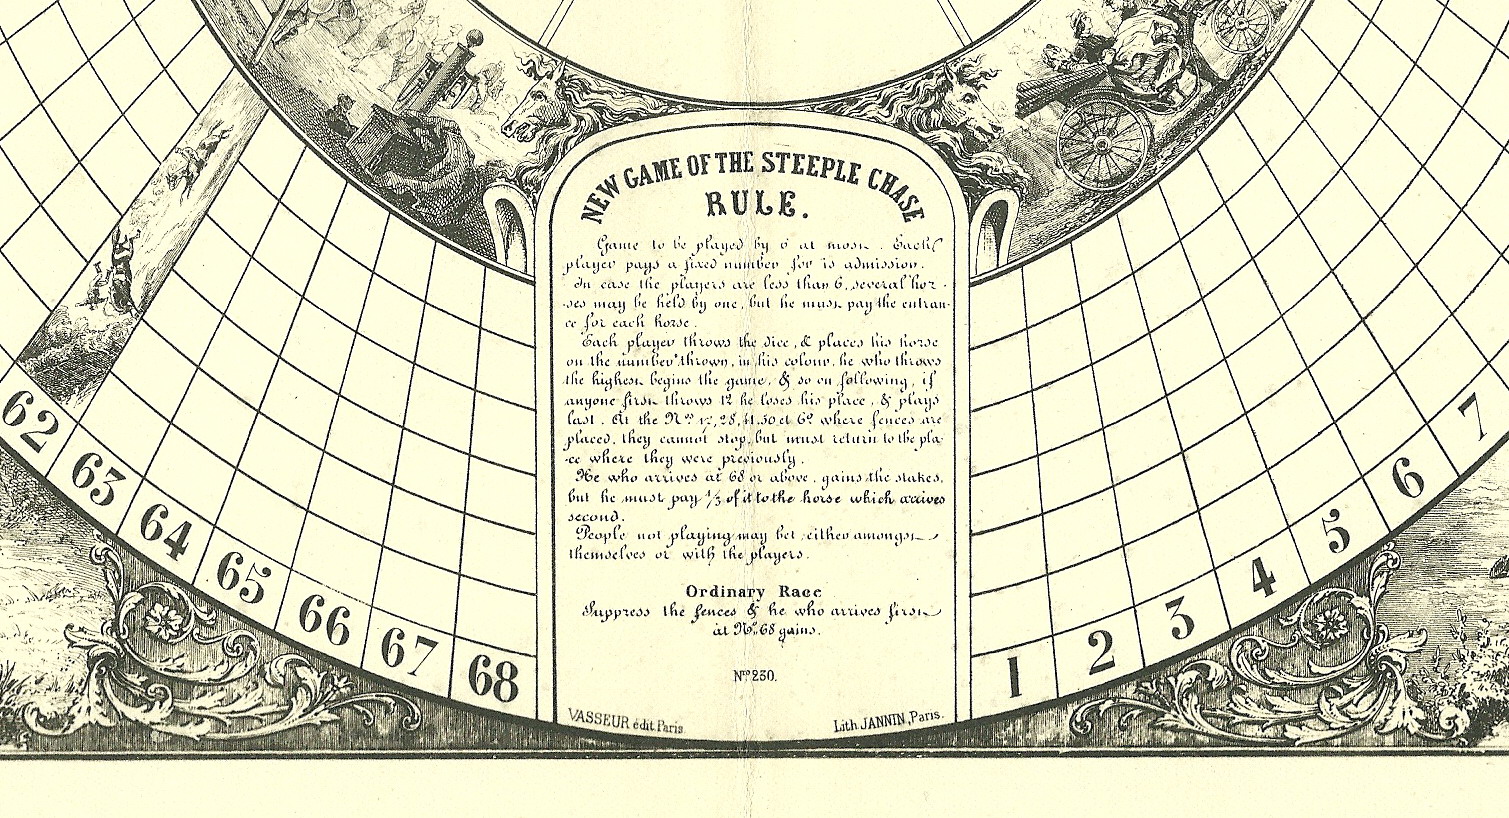 NEW GAME OF THE STEEPLE CHASE
RULE.
Game to be played by 6 at most. Each
player pays a fixed number for is admission.
In case the players are less than 6, several hor-
-ses may be held by one, but he must pay the entran-
ce for each horse.
Each player throws the dice, & places his horse
on the number thrown, in his colour, he who throws
the highest begins the game, & so on following, if
anyone first throws 12 he loses his place, & plays
last. At the Nos 17, 28, 41, 50 et 62 where fences are
placed, they cannot stop, but must return to the pla-
-ce where they were previously.
He who arrives at 68 or above, gains the stakes,
but he must pay 1/3 of it to the horse which arrives
second.
People not playing may bet either amongst
themselves or with the players.
Ordinary Race
Suppress the fences & he who arrives first
at No. 68 gains.
No 230.
VASSEUR édit Paris
Lith. JANNIN, Paris.
62
63
64
65
66
67
68
1
2
3
4
5
6
7